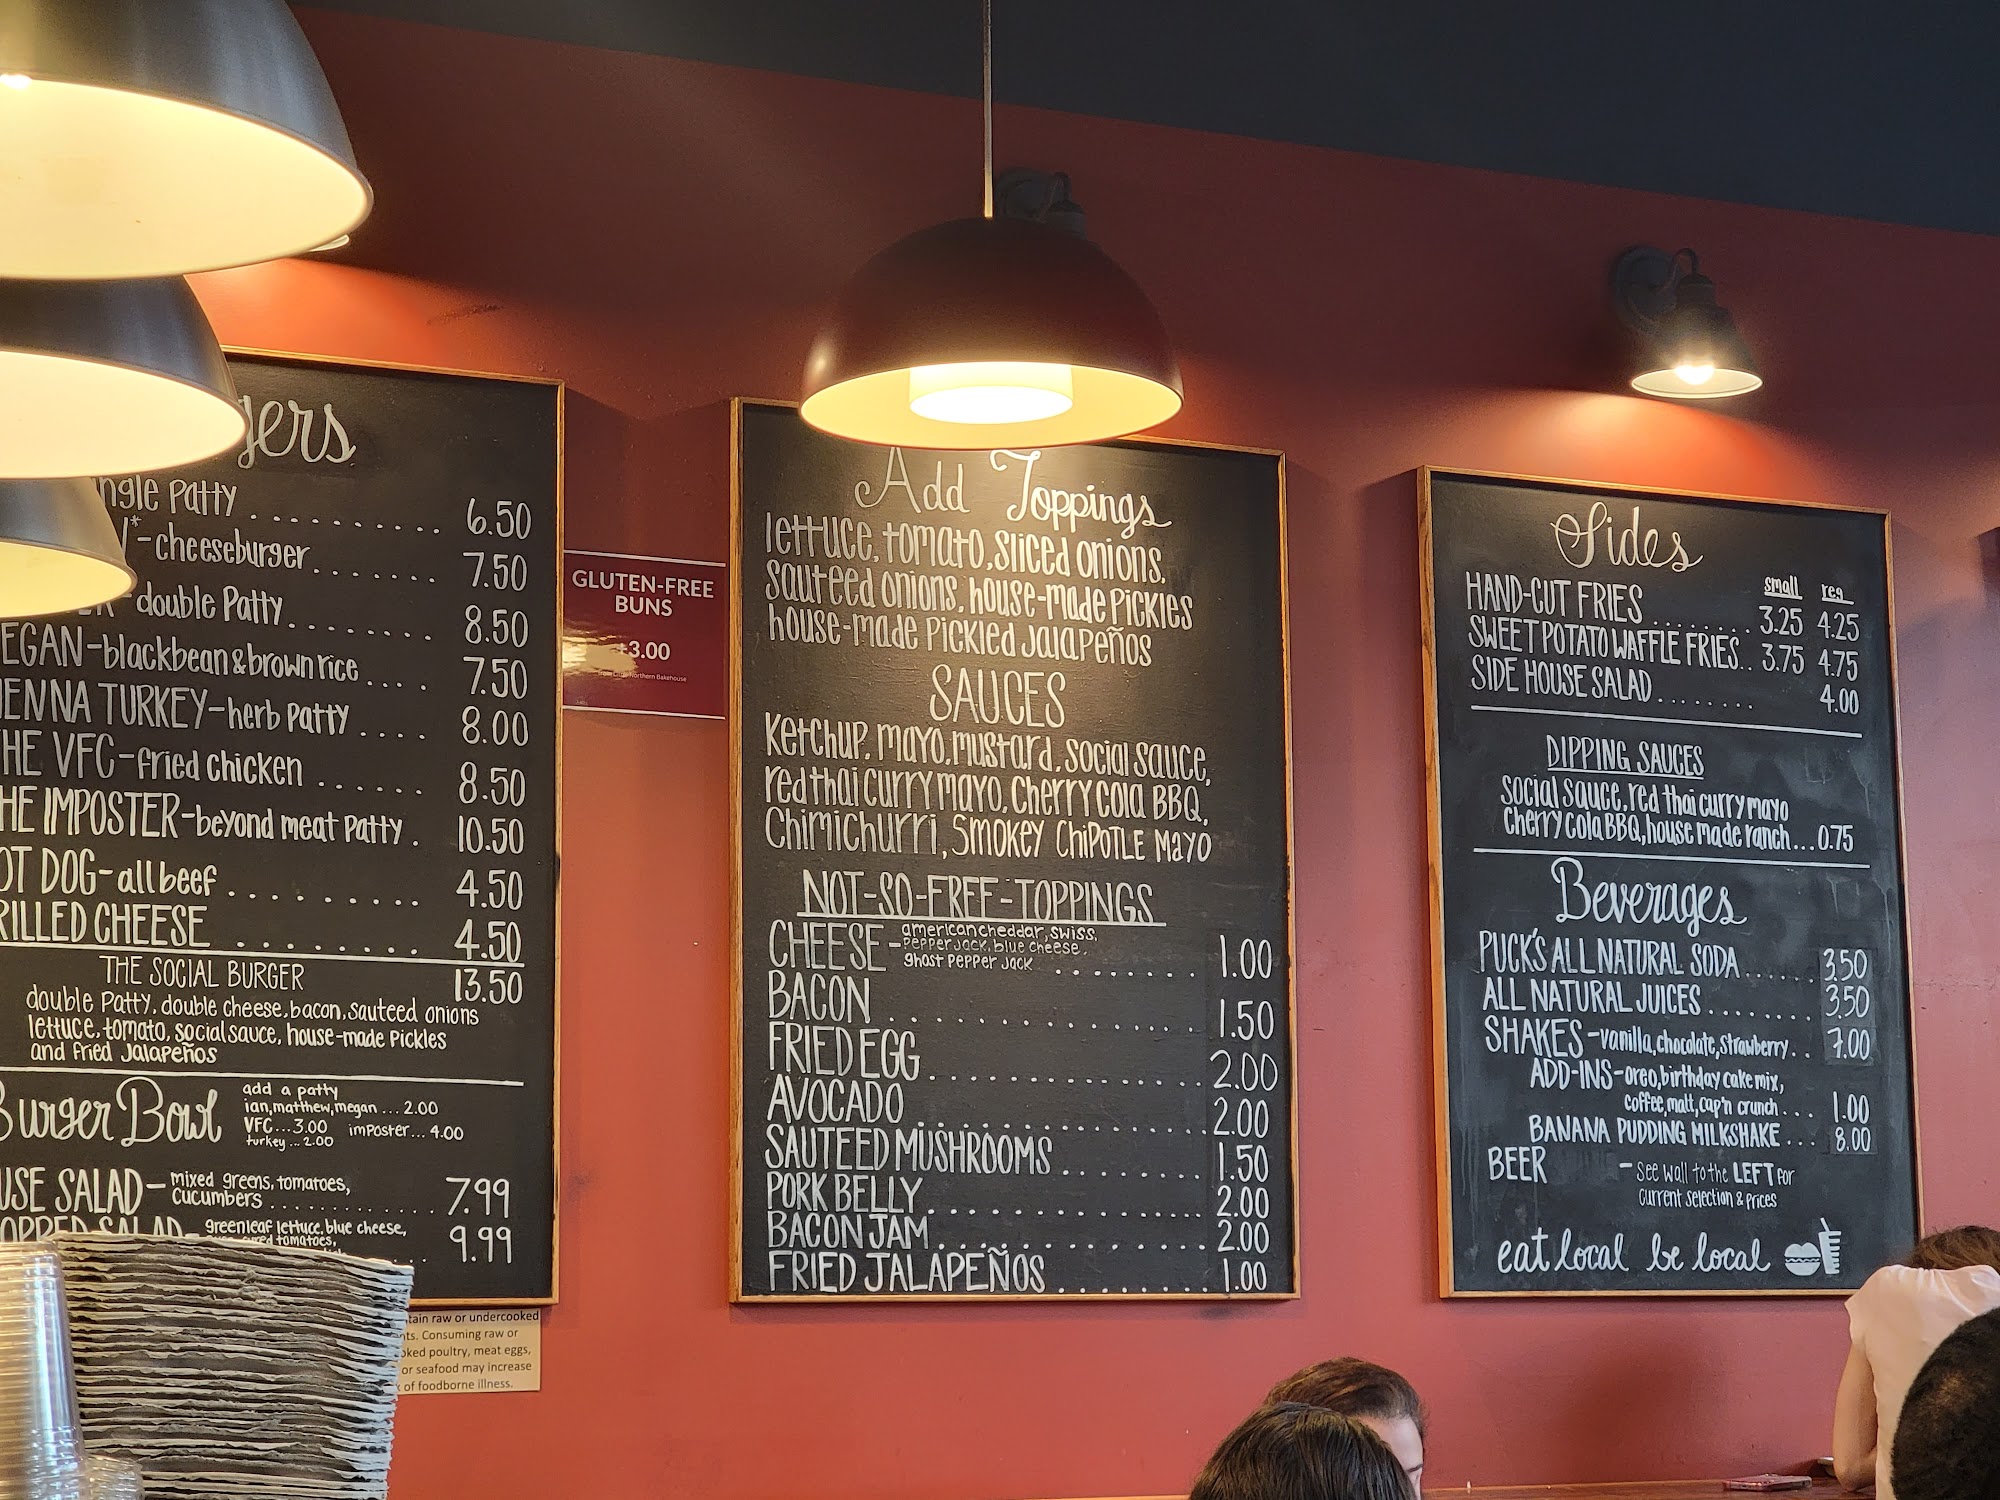 gers
ngle Patty . . . . . . . . . . 6.50
l*-cheeseburger . . . . . . . 7.50
-double Patty . . . . . . . . 8.50
EGAN-blackbean & brown rice . . . . 7.50
ENNA TURKEY-herb Patty . . . . 8.00
HE VFC-fried chicken . . . . . . 8.50
HE IMPOSTER-beyond meat Patty . 10.50
OT DOG-all beef . . . . . . . . . 4.50
RILLED CHEESE . . . . . . . . 4.50
THE SOCIAL BURGER 13.50
double Patty, double cheese, bacon, sauteed onions
lettuce, tomato, social sauce, house-made Pickles
and fried Jalapeños
Burger Bowl
add a patty
ian, matthew, megan ... 2.00
VFC ... 3.00 imposter ... 4.00
turkey ... 2.00
USE SALAD- mixed greens, tomatoes,
cucumbers . . . . . . . . . . . . 7.99
OPPED SALAD- greenleaf lettuce, blue cheese,
tomatoes,
9.99
tain raw or undercooked
nts. Consuming raw or
oked poultry, meat eggs,
or seafood may increase
of foodborne illness.
GLUTEN-FREE
BUNS
+3.00
Northern Bakehouse
Add Toppings
lettuce, tomato, sliced onions,
sauteed onions, house-made pickles
house-made Pickled Jalapeños
SAUCES
Ketchup, mayo, mustard, social sauce,
red thai curry mayo, Cherry cola BBQ,
Chimichurri, Smokey Chipotle Mayo
NOT-SO-FREE-TOPPINGS
CHEESE- american cheddar, swiss,
PepperJack, blue cheese,
ghost pepper Jack . . . . . . . . 1.00
BACON . . . . . . . . . . . . . . 1.50
FRIED EGG . . . . . . . . . . . . 2.00
AVOCADO . . . . . . . . . . . . . 2.00
SAUTEED MUSHROOMS . . . . . . . 1.50
PORK BELLY . . . . . . . . . . . . 2.00
BACON JAM . . . . . . . . . . . . 2.00
FRIED JALAPEÑOS . . . . . . . . 1.00
Sides
small reg
HAND-CUT FRIES . . . . . . . . 3.25 4.25
SWEET POTATO WAFFLE FRIES . . 3.75 4.75
SIDE HOUSE SALAD . . . . . . . . 4.00
DIPPING SAUCES
social sauce, red thai curry mayo
cherry cola BBQ, house made ranch ... 0.75
Beverages
PUCK'S ALL NATURAL SODA . . . . . . 3.50
ALL NATURAL JUICES . . . . . . . . 3.50
SHAKES-vanilla, chocolate, strawberry . . 7.00
ADD-INS-oreo, birthday cake mix,
coffee, malt, cap'n crunch . . . . 1.00
BANANA PUDDING MILKSHAKE . . . 8.00
BEER - See wall to the LEFT for
current selection & prices
eat local be local